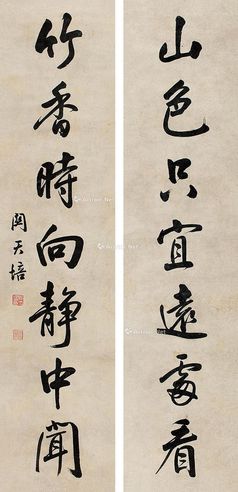 山色只宜遠處看
竹香時向靜中聞
關天培